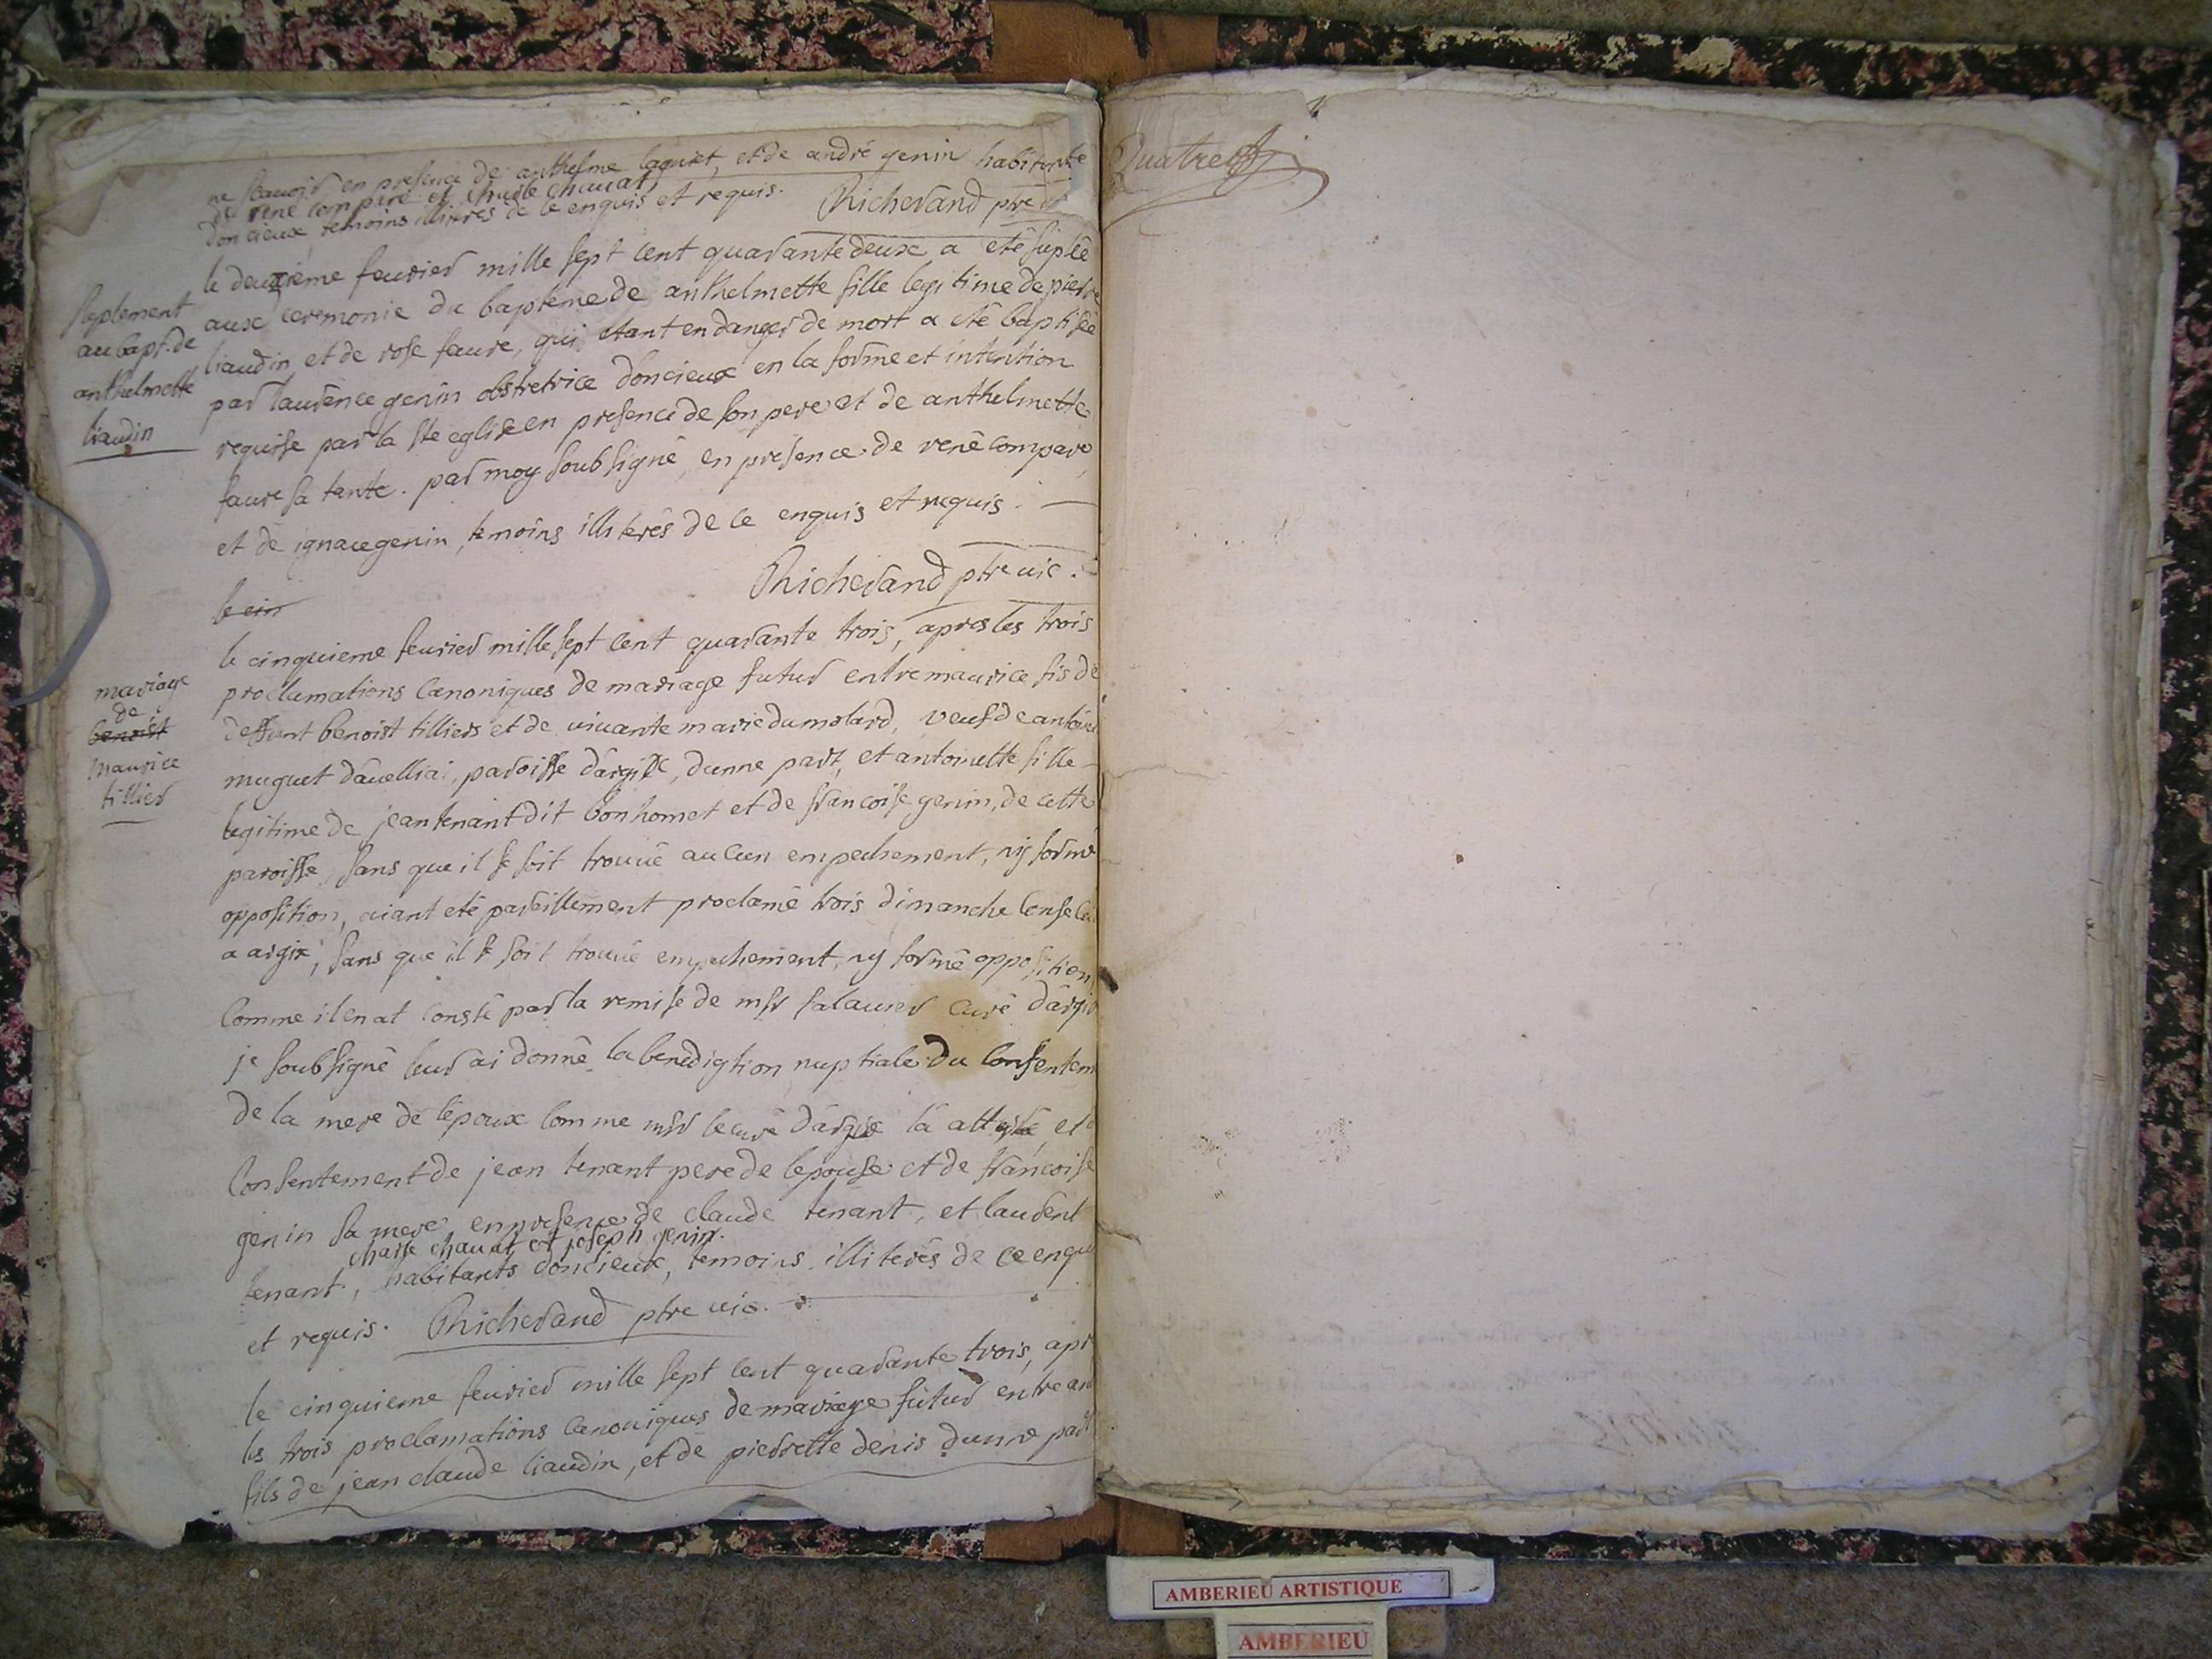 ne scavoir en presence de anthelme laguet, et de andré genin habitants
de rené compere et charle chavat,
doncieux temoins illiteres de ce enquis et requis. Richerand ptre
le deuxieme feurier mille sept cent quarante deux a eté suplée
Suplement
au bapt. de
anthelmette
liaudin
aux ceremonie du baptême de anthelmette fille legitime de pierre
liaudin et de rose faure, qui etant en danger de mort a eté baptisée
par laurence genin obstretrice doncieux en la forme et intention
requise par la ste eglise en presence de son pere et de anthelmette
faure sa tante. par moy soubsigné, en presence de rené compere,
et de ignace genin, temoins illiterés de ce enquis et requis.
Richerand ptre vic.
le cin
le cinquieme feurier mille sept cent quarante trois, apres les trois
mariage
de
benoist
maurice
tillier
proclamations canoniques de mariage futur entre maurice fis de
deffunt benoist tilliers et de vivante marie dumolard, veuf de
muguet d'avelliai, paroisse d'argis, dunne part, et antoinette fille
legitime de jean tenant dit bonhomet et de francoise genin, de cette
paroisse, sans que il se soit trouvé aucun empechement, ny formé
opposition, aiant eté pareillement proclamé trois dimanche
a argix, sans que il se soit trouvé empechement, ny formé opposition
comme il en at consté par la remise de msr falavier curé d'argis
je soubsigné leur ai donné la benedigtion nuptiale du consentem
de la mere de l'epoux comme msr le curé d'argix la attesté, et d
consentement de jean tenant pere de lepouse et de francoise
genin sa mere, en presence de claude tenant, et laurent
charle chavat et joseph genin.
tenant, habitants doncieux, temoins illiterés de ce enqui
et requis. Richerand ptre vic.
le cinquieme feurier mille sept cent quarante trois, apr
les trois proclamations canoniques de mariage futur entre an
fils de jean claude liaudin, et de pierrette denis dunne part
Quatre
AMBERIEU ARTISTIQUE
AMBERIEU